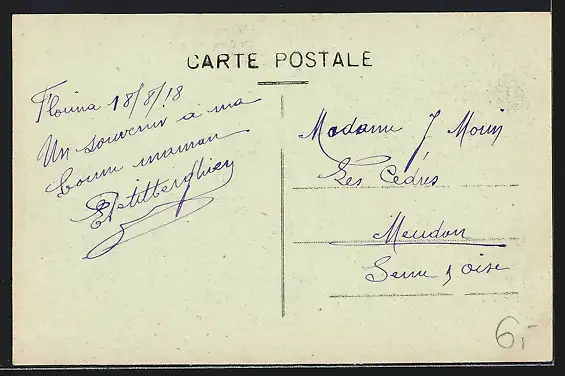 CARTE POSTALE
Florina 18/8/18
Un souvenir a ma
bonne maman
Madame J Mouy
Les Cèdres
Meudon
Seine & Oise
6,-